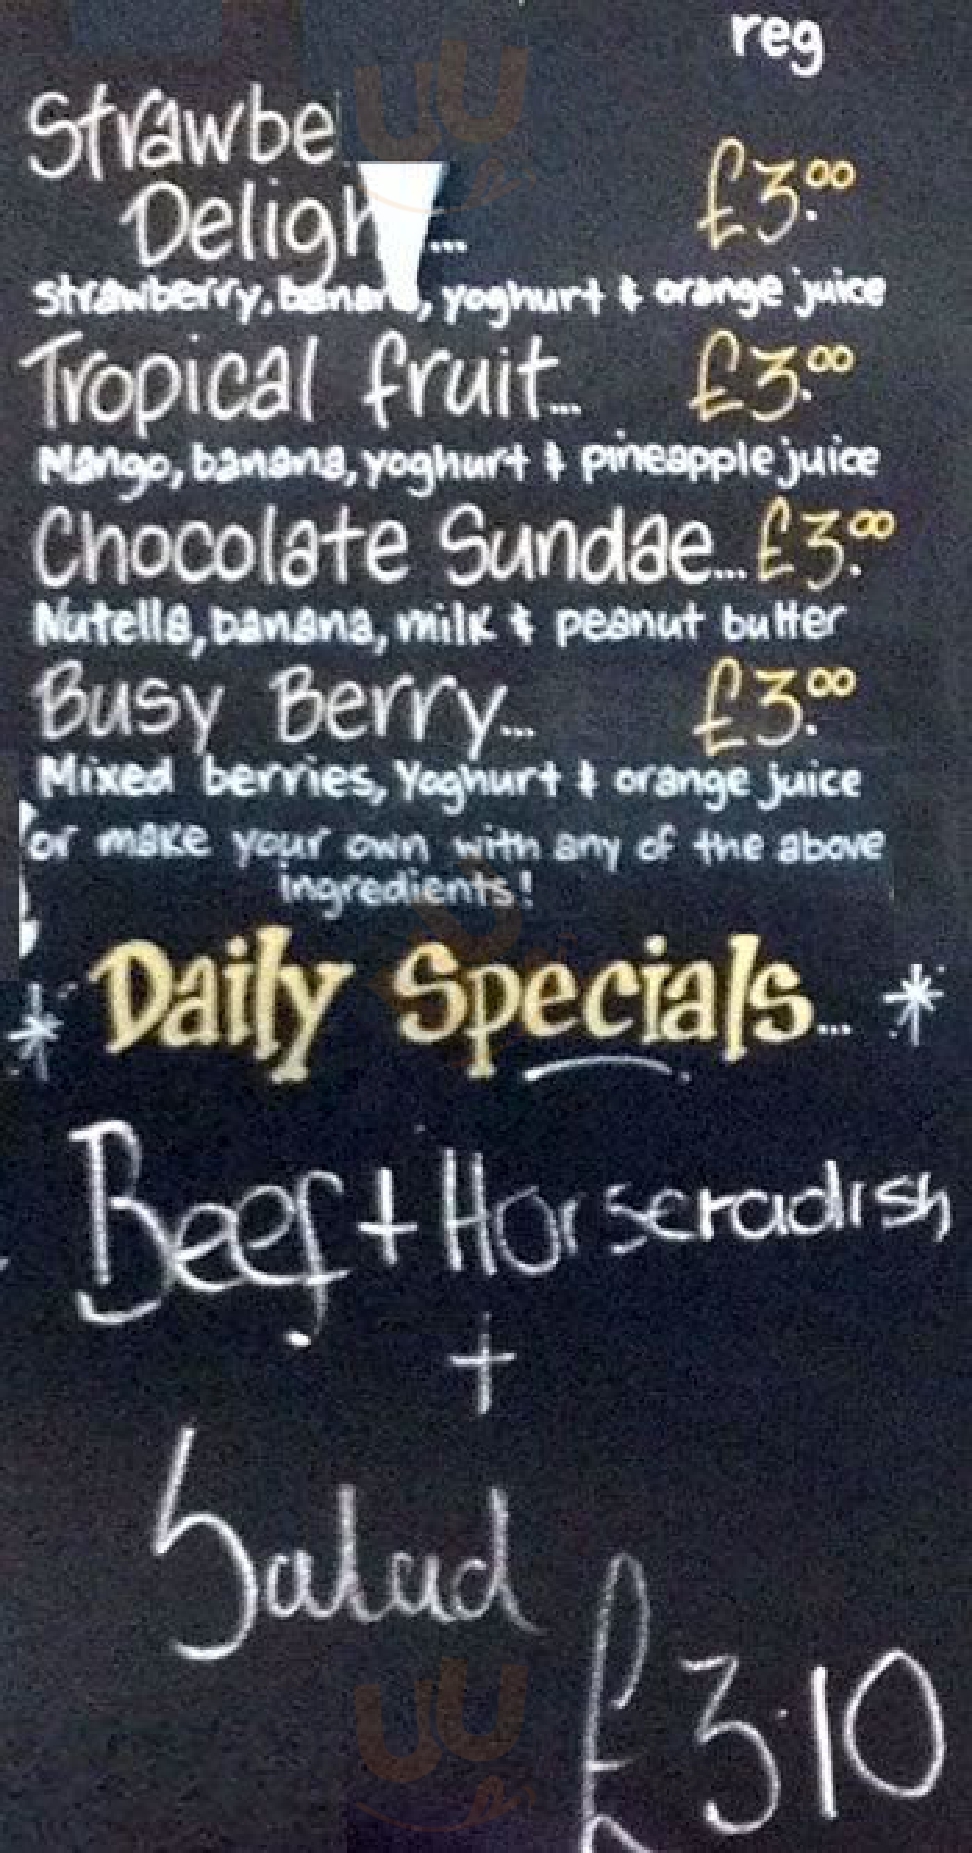 reg
Strawbe
Deligh... £3.00
strawberry, banana, yoghurt & orange juice
Tropical fruit... £3.00
Mango, banana, yoghurt & pineapple juice
Chocolate Sundae... £3.00
Nutella, banana, milk & peanut butter
Busy Berry... £3.00
Mixed berries, Yoghurt & orange juice
or make your own with any of the above
ingredients!
* Daily Specials... *
Beef + Horseradish
+
Salad
£3.10